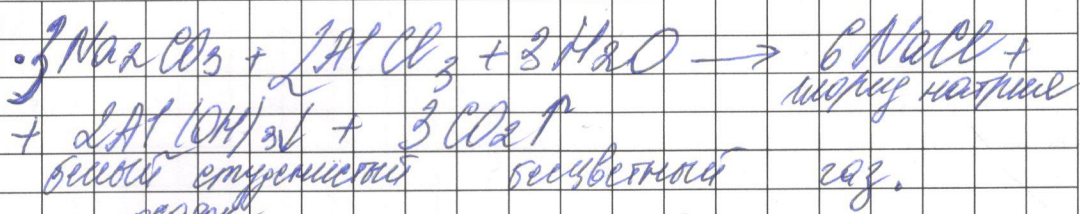 3Na2CO3 + 2AlCl3 + 3H2O → 6NaCl +
хлорид натрия
+ 2Al(OH)3↓ + 3CO2↑
белый студенистый бесцветный газ.